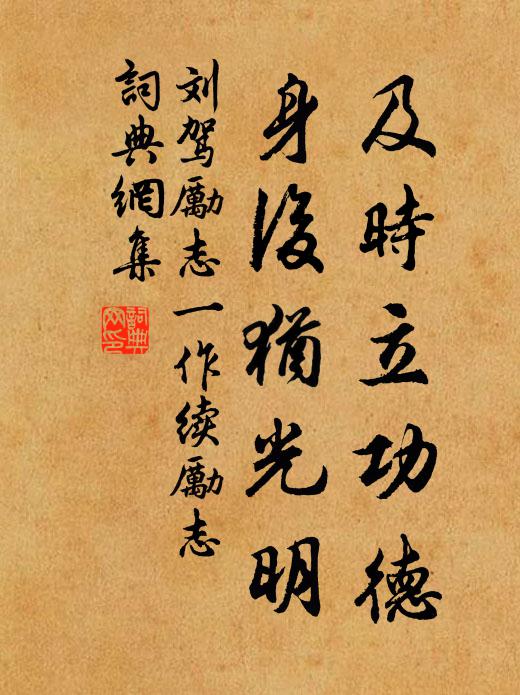 及時立功德
身後猶光明
刘驾勵志一作续勵志
詞典網集
詞典網印